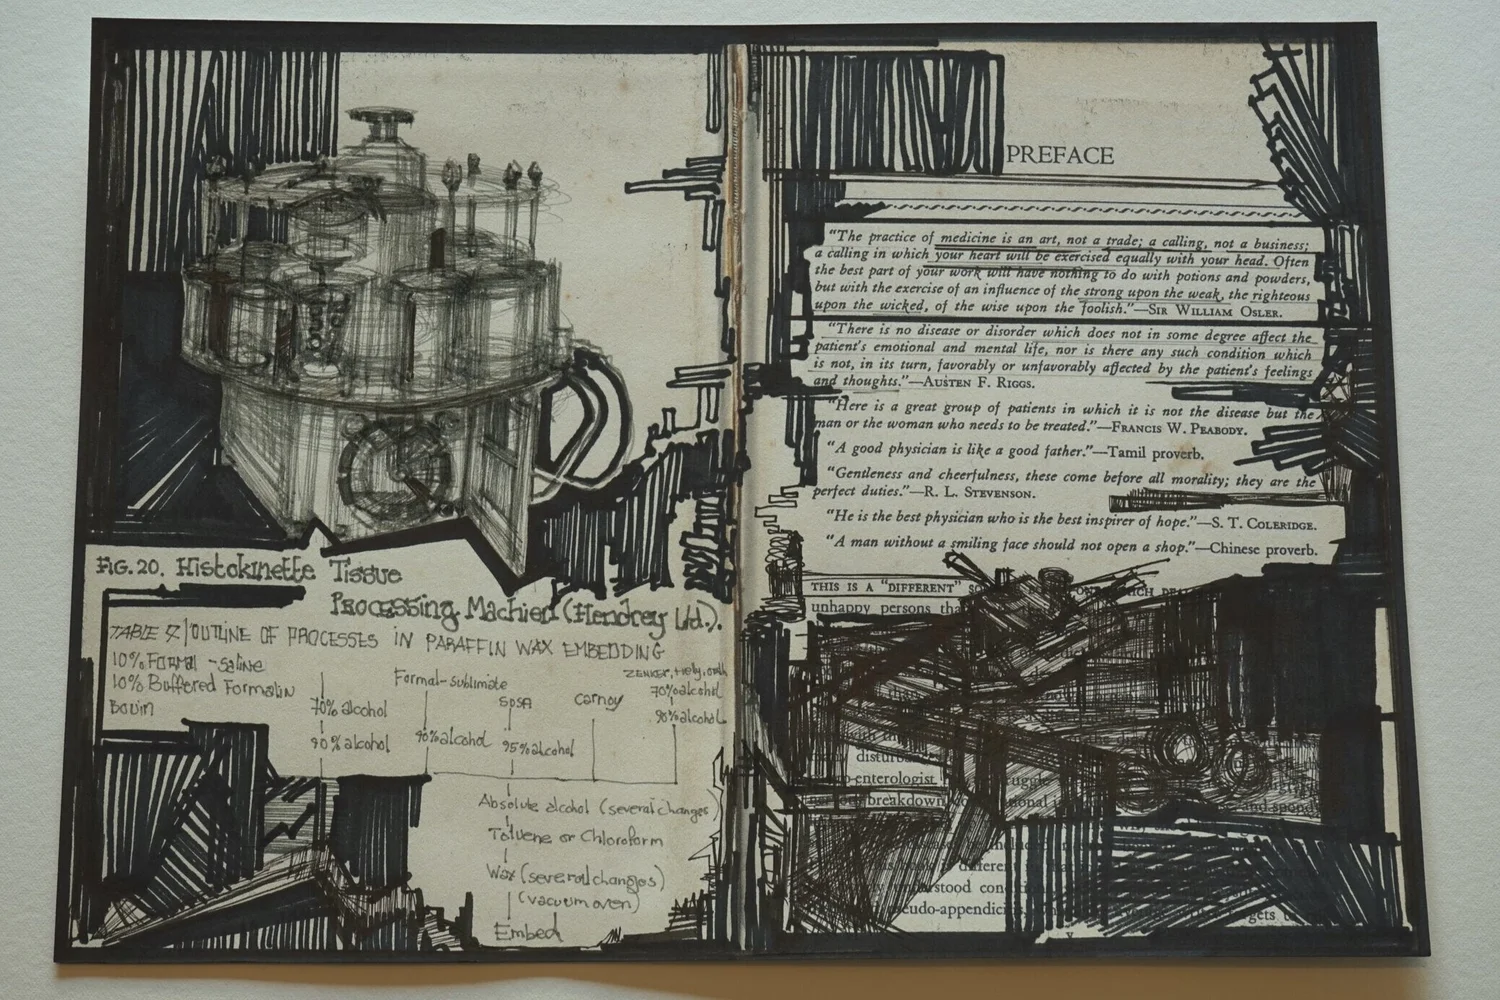 FIG. 20. Histokinette Tissue
Processing Machien (Hendrey Ltd.).
TABLE OUTLINE OF PROCESSES IN PARAFFIN WAX EMBEDDING
10% Formal-saline
10% Buffered Formalin
Bouin
70% alcohol
90% alcohol
Formal-sublimate
90% alcohol
SPSA
95% alcohol
Carnoy
ZENKER, Hely,
70% alcohol
90% alcohol
Absolute alcohol (several changes)
Toluene or Chloroform
Wax (several changes)
(vacuum oven)
Embed
PREFACE
"The practice of medicine is an art, not a trade; a calling, not a business;
a calling in which your heart will be exercised equally with your head. Often
the best part of your work will have nothing to do with potions and powders,
but with the exercise of an influence of the strong upon the weak, the righteous
upon the wicked, of the wise upon the foolish."—SIR WILLIAM OSLER.
"There is no disease or disorder which does not in some degree affect the
patient's emotional and mental life, nor is there any such condition which
is not, in its turn, favorably or unfavorably affected by the patient's feelings
and thoughts."—AUSTEN F. RIGGS.
"Here is a great group of patients in which it is not the disease but the
man or the woman who needs to be treated."—FRANCIS W. PEABODY.
"A good physician is like a good father."—Tamil proverb.
"Gentleness and cheerfulness, these come before all morality; they are the
perfect duties."—R. L. STEVENSON.
"He is the best physician who is the best inspirer of hope."—S. T. COLERIDGE.
"A man without a smiling face should not open a shop."—Chinese proverb.
THIS IS A "DIFFERENT"
unhappy persons
breakdown
and
different in
pseudo-appendicitis,